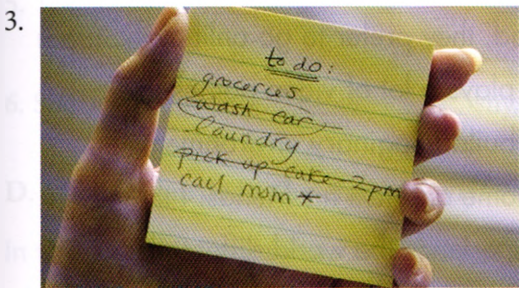 3.
to do:
groceries
wash car
laundry
pick up cake 2pm
call mom *